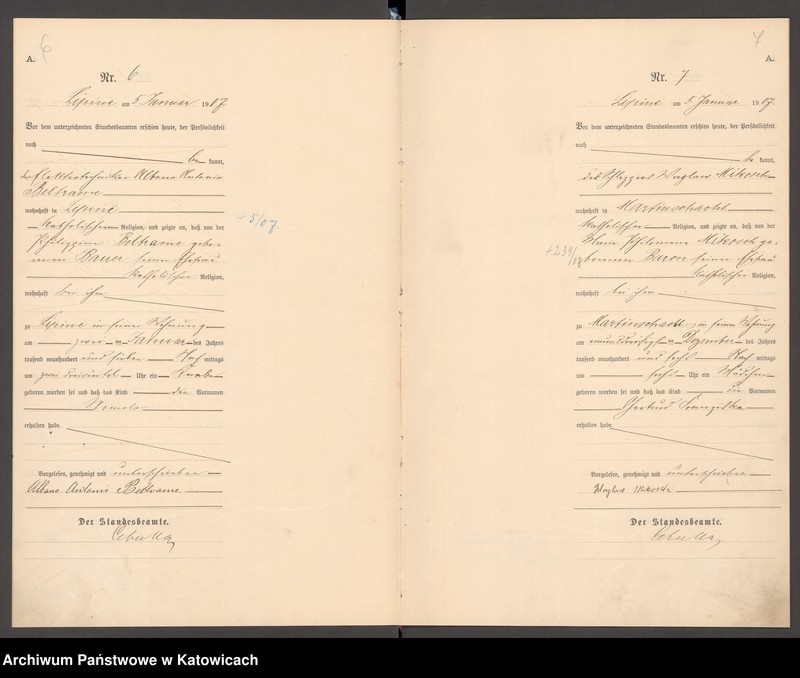 6
A.
Nr. 6
Lipine am 5 Januar 1907
Vor dem unterzeichneten Standesbeamten erschien heute, der Persönlichkeit
nach
be kannt,
der Elektrotechniker Albano Antonio
Beltrame
wohnhaft in Lipine
katholischer Religion, und zeigte an, daß von der
Beltrame gebo-
renen seiner Ehefrau
katholischer Religion,
wohnhaft bei ihm
zu Lipine in seiner Wohnung
am zwei ten Januar des Jahres
tausend neunhundert und sieben Nach mittags
um zwei dreiviertel Uhr ein Knabe
geboren worden sei und daß das Kind den Vornamen
Romolo
erhalten habe.
Vorgelesen, genehmigt und unterschrieben
Albano Antonio Beltrame
Der Standesbeamte.
Cebulla
5/07
7
A.
Nr. 7
Lipine am 5 Januar 1907
Vor dem unterzeichneten Standesbeamten erschien heute, der Persönlichkeit
nach
be kannt,
der Schlepper Mikosch
wohnhaft in Martinschacht
katholischer Religion, und zeigte an, daß von der
Marie Philomene Mikosch ge-
borenen Baron seiner Ehefrau
katholischer Religion,
wohnhaft bei ihm
zu Martinschacht in seiner Wohnung
am neunundzwanzigsten Dezember des Jahres
tausend neunhundert und sechs Nach mittags
um sechs Uhr ein Mädchen
geboren worden sei und daß das Kind die Vornamen
Gertrud Franziska
erhalten habe.
Vorgelesen, genehmigt und unterschrieben
Der Standesbeamte.
Cebulla
Archiwum Państwowe w Katowicach